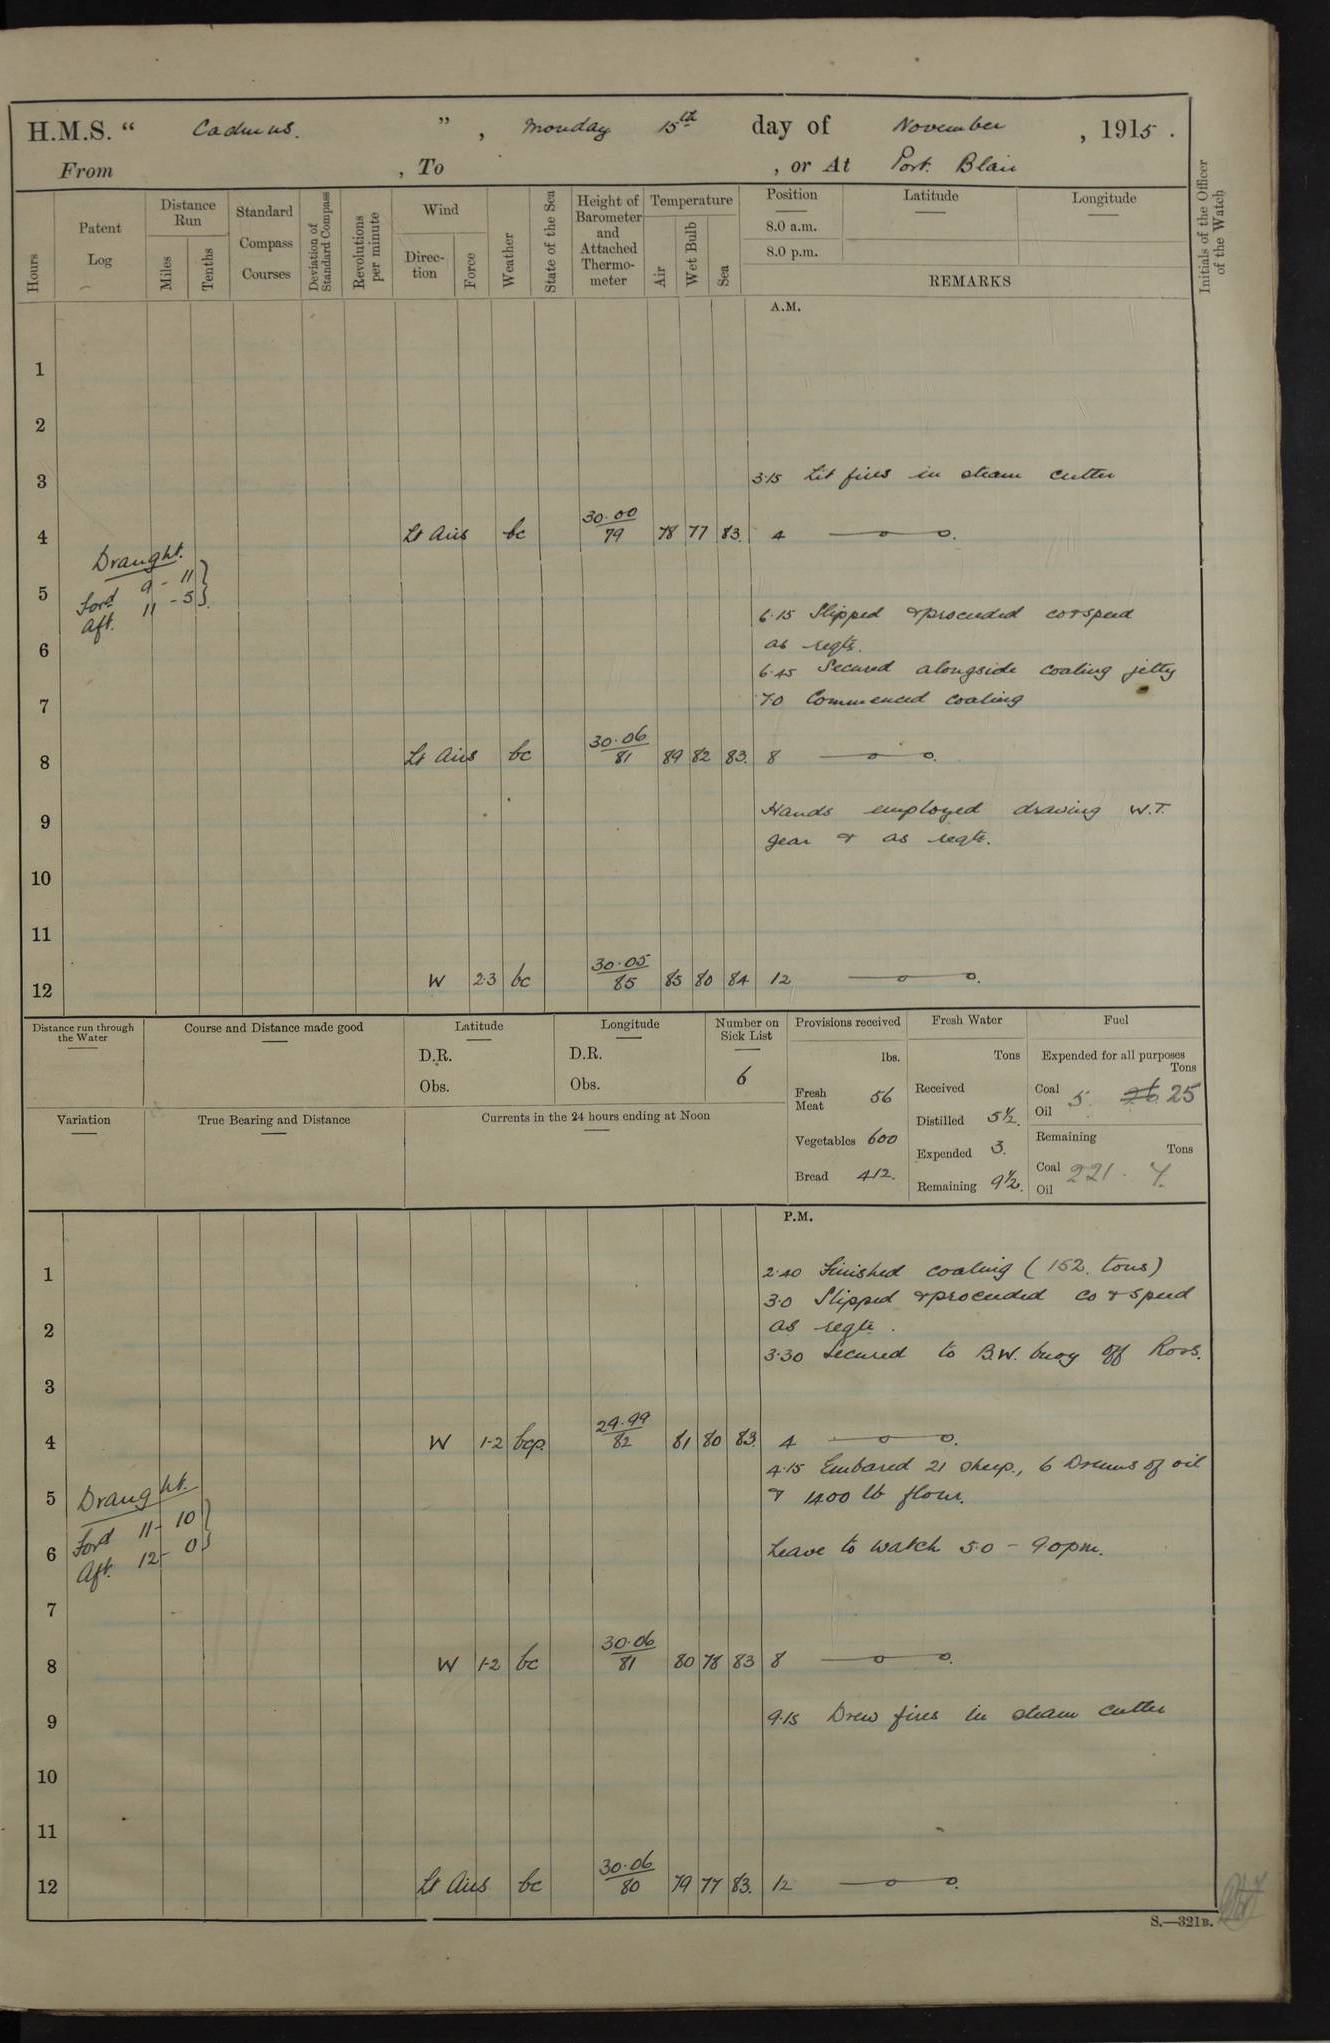 H.M.S. “ Cadmus. ” , Monday 15th day of November , 1915 .
From , To , or At Port Blair
Hours
Patent Log
Distance Run
Miles
Tenths
Standard Compass Courses
Deviation of Standard Compass
Revolutions per minute
Wind
Direction
Force
Weather
State of the Sea
Height of Barometer and Attached Thermometer
Temperature
Air
Wet Bulb
Sea
Position
8.0 a.m.
8.0 p.m.
Latitude
Longitude
REMARKS
Initials of the Officer of the Watch
A.M.
1
2
3 3.15 Lit fires in steam cutter
4 Lt Airs bc 30.00 79 78 77 83. 4
Draught.
Ford 9 - 11
Aft. 11 - 5
5
6.15 Slipped & proceeded co & speed
6 as reqte.
6.45 Secured alongside coaling jetty
7 7.0 Commenced coaling
8 Lt Airs bc 30.06 81 89 82 83. 8
9 Hands employed drawing W.T.
gear & as reqte.
10
11
12 W 2.3 bc 30.05 85 85 80 84 12
Distance run through the Water
Course and Distance made good
Latitude
D.R.
Obs.
Longitude
D.R.
Obs.
Number on Sick List
6
Provisions received
lbs.
Fresh Meat 56
Vegetables 600
Bread 412.
Fresh Water
Tons
Received
Distilled 5½.
Expended 3.
Remaining 9½.
Fuel
Expended for all purposes
Tons
Coal 5. 26 25
Oil
Remaining
Tons
Coal 221. 7.
Oil
Variation
True Bearing and Distance
Currents in the 24 hours ending at Noon
P.M.
1 2.40 Finished coaling (152. tons)
3.0 Slipped & proceeded co & speed
2 as reqte.
3.30 Secured to B.W. buoy off Ross.
3
4 W 1-2 bcp. 29.99 82 81 80 83. 4
4.15 Embared 21 sheep., 6 Drums of oil
5 & 1400 lb flour.
Draught.
Ford 11 - 10
Aft. 12 - 0
6 Leave to watch 5.0 - 9.0 pm.
7
8 W 1-2 bc 30.06 81 80 78 83 8
9 9.15 Drew fires in steam cutter
10
11
12 Lt Airs bc 30.06 80 79 77 83. 12
S.—321B.